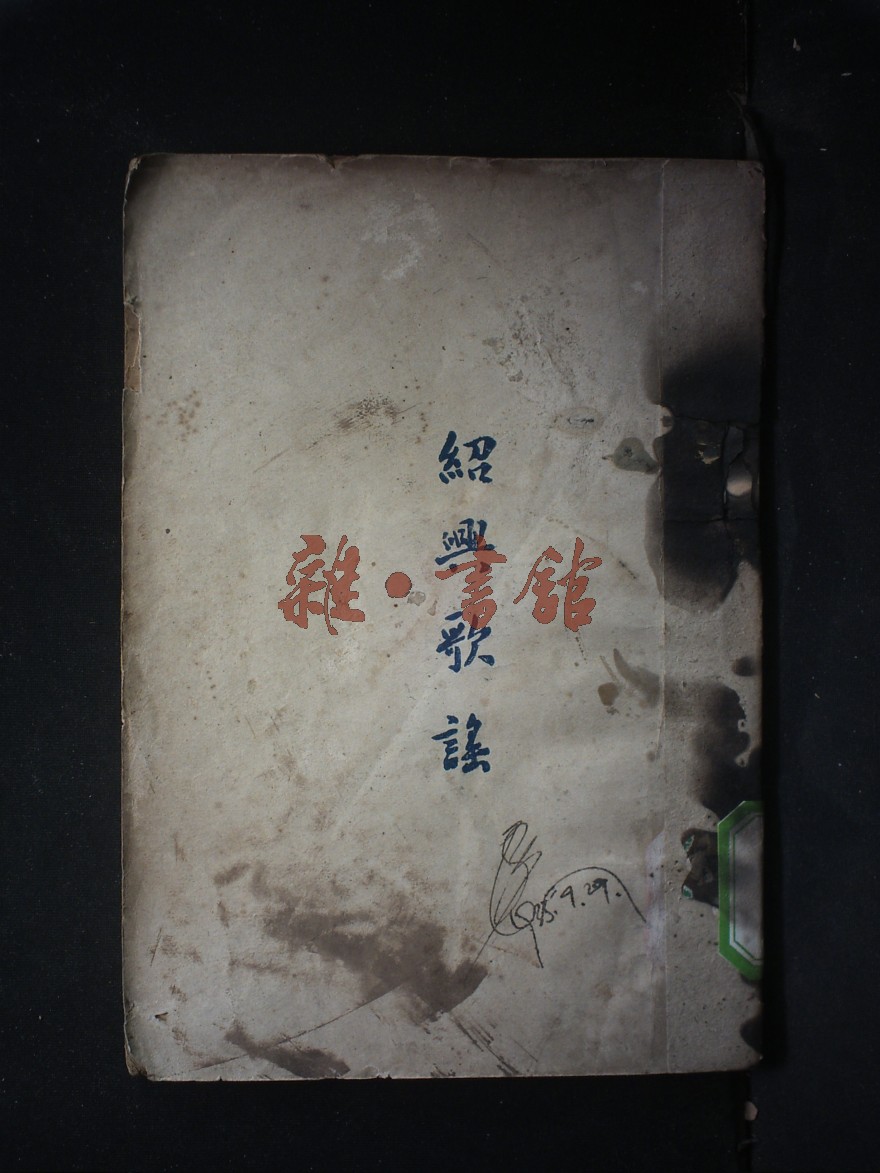 紹興歌謠
雜·書館
35.9.29.